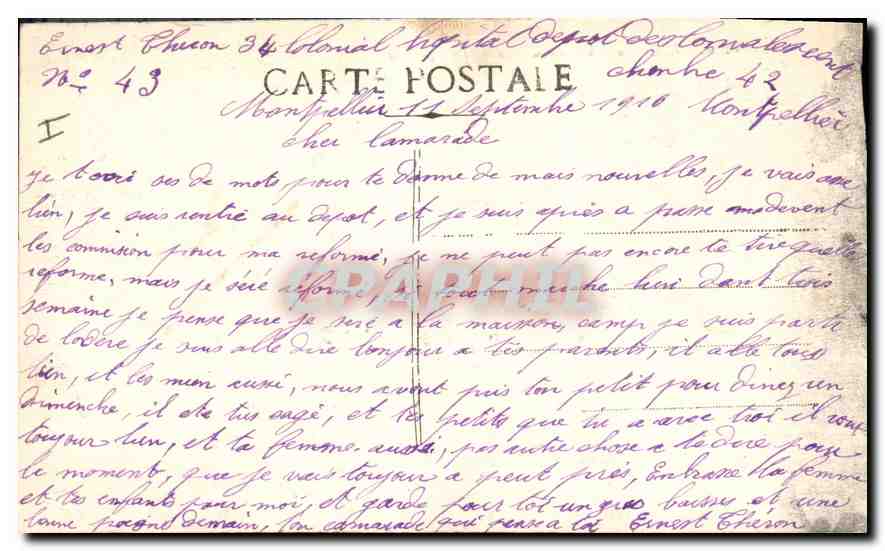 Ernest Théron 34 Colonial hopital depot de
No 43 CARTE POSTALE chenbre 42
Montpellier 11 Septembre 1916 Montpellier
I
cher Camarade
Je de mots pour te donne de mais nouvelles, je vais
bien, je suis rentré au depot, et je suis après a passe devent
les commision pour ma reformé, je ne peut pas encore te dire quelle
reforme, mais je séré reformé, si tout marche bien dant trois
semaine je pense que je seré a la maisson, camp je suis parti
de je suis alle dire bonjour a tes parents, il alle tous
bien, et les mien aussi, nous avont puis ton petit pour diner un
dimenche, il ete tres sagé, et tes petits que tu a avec toi il vont
toujour bien, et ta femme aussi, pas autre chose a te dire pour
le moment, que je vais toujour a peut près, Enbrasse ta femme
et tes enfants pour moi, et garde pour toi un gros baisse et une
bonne pogne demain, ton camarade qui pense a toi Ernest Théron
CPAPHIL